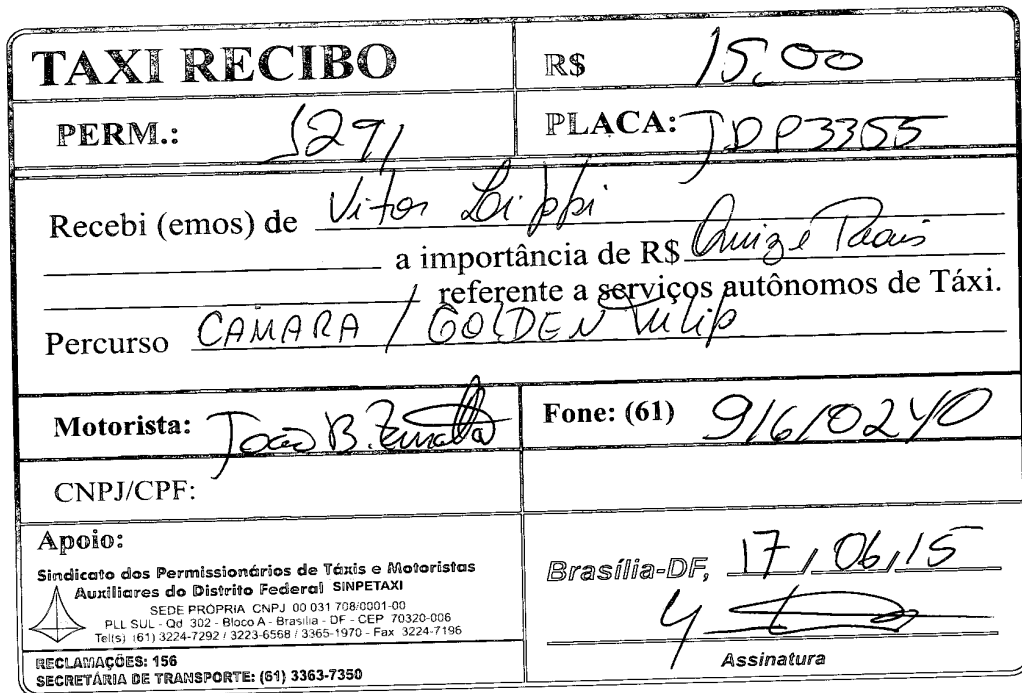 TAXI RECIBO
R$ 15,00
PERM.: 1291
PLACA: JDP3355
Recebi (emos) de Vitor Lippi
a importância de R$ Quize Reais
referente a serviços autônomos de Táxi.
Percurso CAMARA / GOLDEN Tulip
Motorista: João B.
Fone: (61) 91610240
CNPJ/CPF:
Apoio:
Sindicato dos Permissionários de Táxis e Motoristas
Auxiliares do Distrito Federal SINPETAXI
SEDE PRÓPRIA CNPJ 00 031 708/0001-00
PLL SUL - Qd 302 - Bloco A - Brasília - DF - CEP 70320-006
Tel(s) (61) 3224-7292 / 3223-6568 / 3365-1970 - Fax 3224-7196
RECLAMAÇÕES: 156
SECRETÁRIA DE TRANSPORTE: (61) 3363-7350
Brasília-DF, 17/06/15
Assinatura